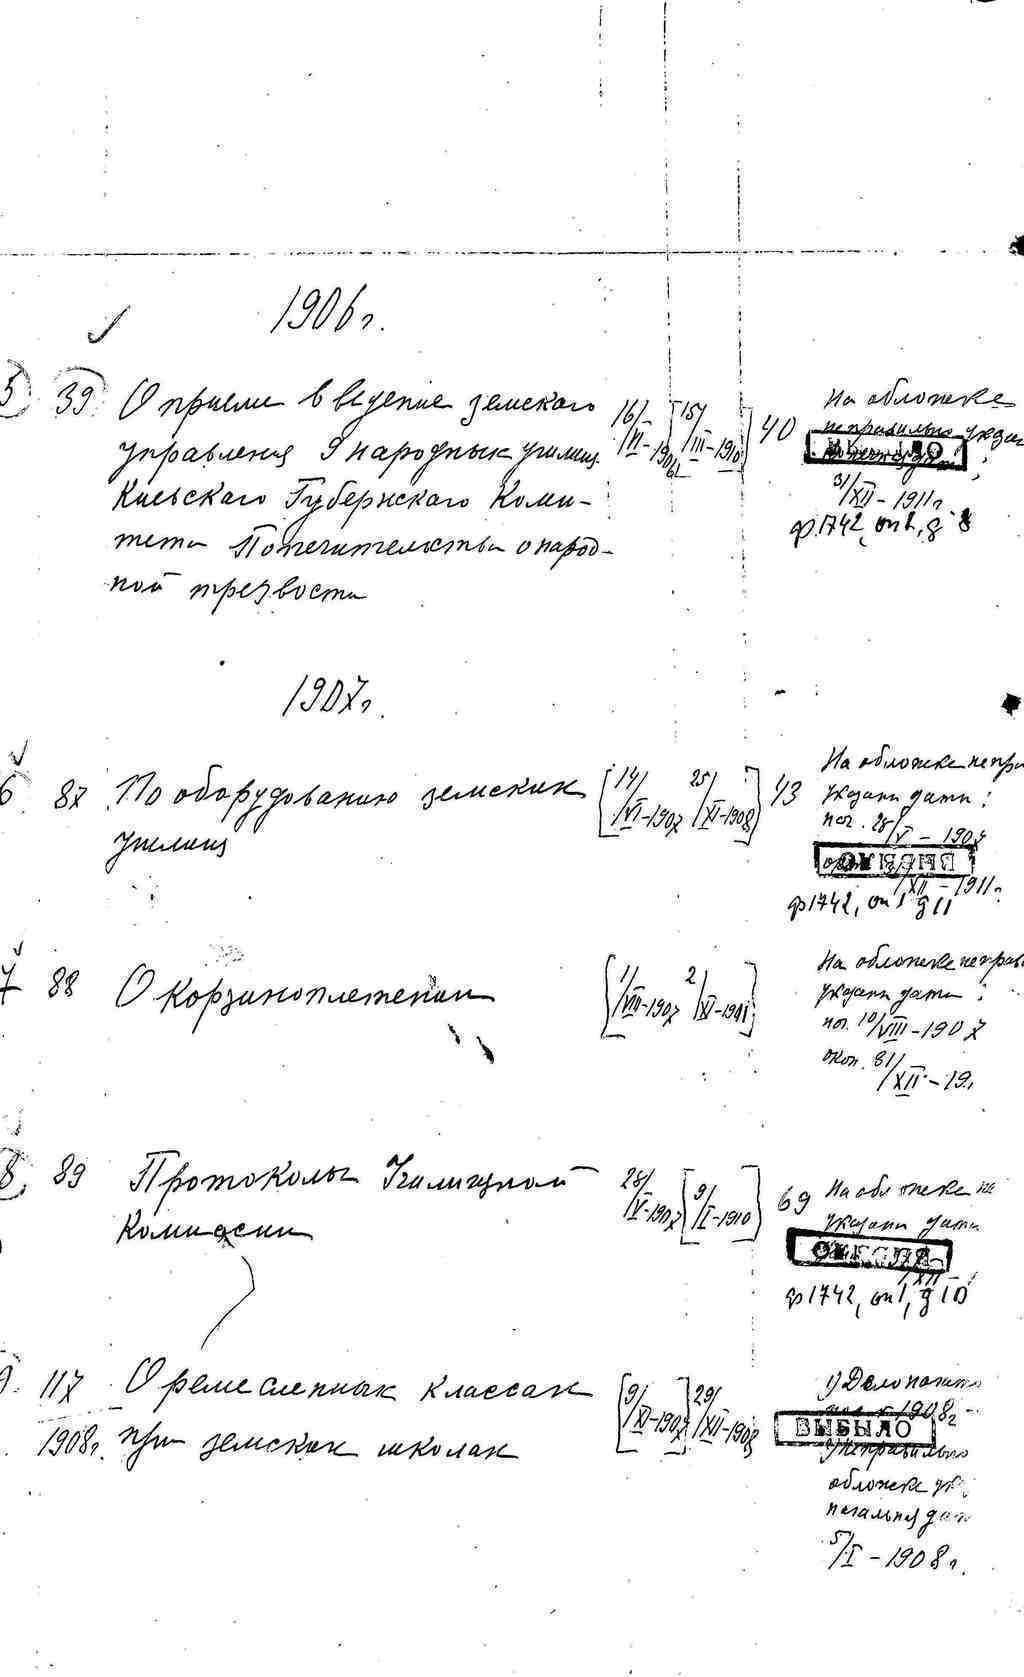 1906г.
5 39 О приеме в ведение земского
управления 9 народных училищ
Киевского Губернского Коми-
тета Попечительства о народ-
ной трезвости
16/VI-1906 [15/III-1910] 40
На обложке
неправильно указан
ВЫБЫЛО
31/XII-1911г
ф.1742, оп 1, д 8
1907г.
6 87 По оборудованию земских
училищ
[14/VI-1907 25/XI-1908] 43
На обложке непра
указаны даты:
нач. 28/V-1907
ВЫБЫЛО
/XII-1911г.
ф1742, оп 1 д 11
7 88 О корзиноплетении
[1/VIII-1907 2/XI-1911]
На обложке неправ
указаны даты:
нач. 10/VIII-1907
окон. 31/
/XII-19
8 89 Протоколы Училищной
Комиссии
28/V-1907 [9/I-1910] 69
На обложке не
указаны даты
/XII-
ф1742, оп 1, д 10
9. 117 О ремесленных классах
1908г. при земских школах
[9/XI-1907] 29/XII-1908
1) Дело начато
1908г
ВЫБЫЛО
2) Неправильно
обложке ук
начальная дат
5/I-1908г.